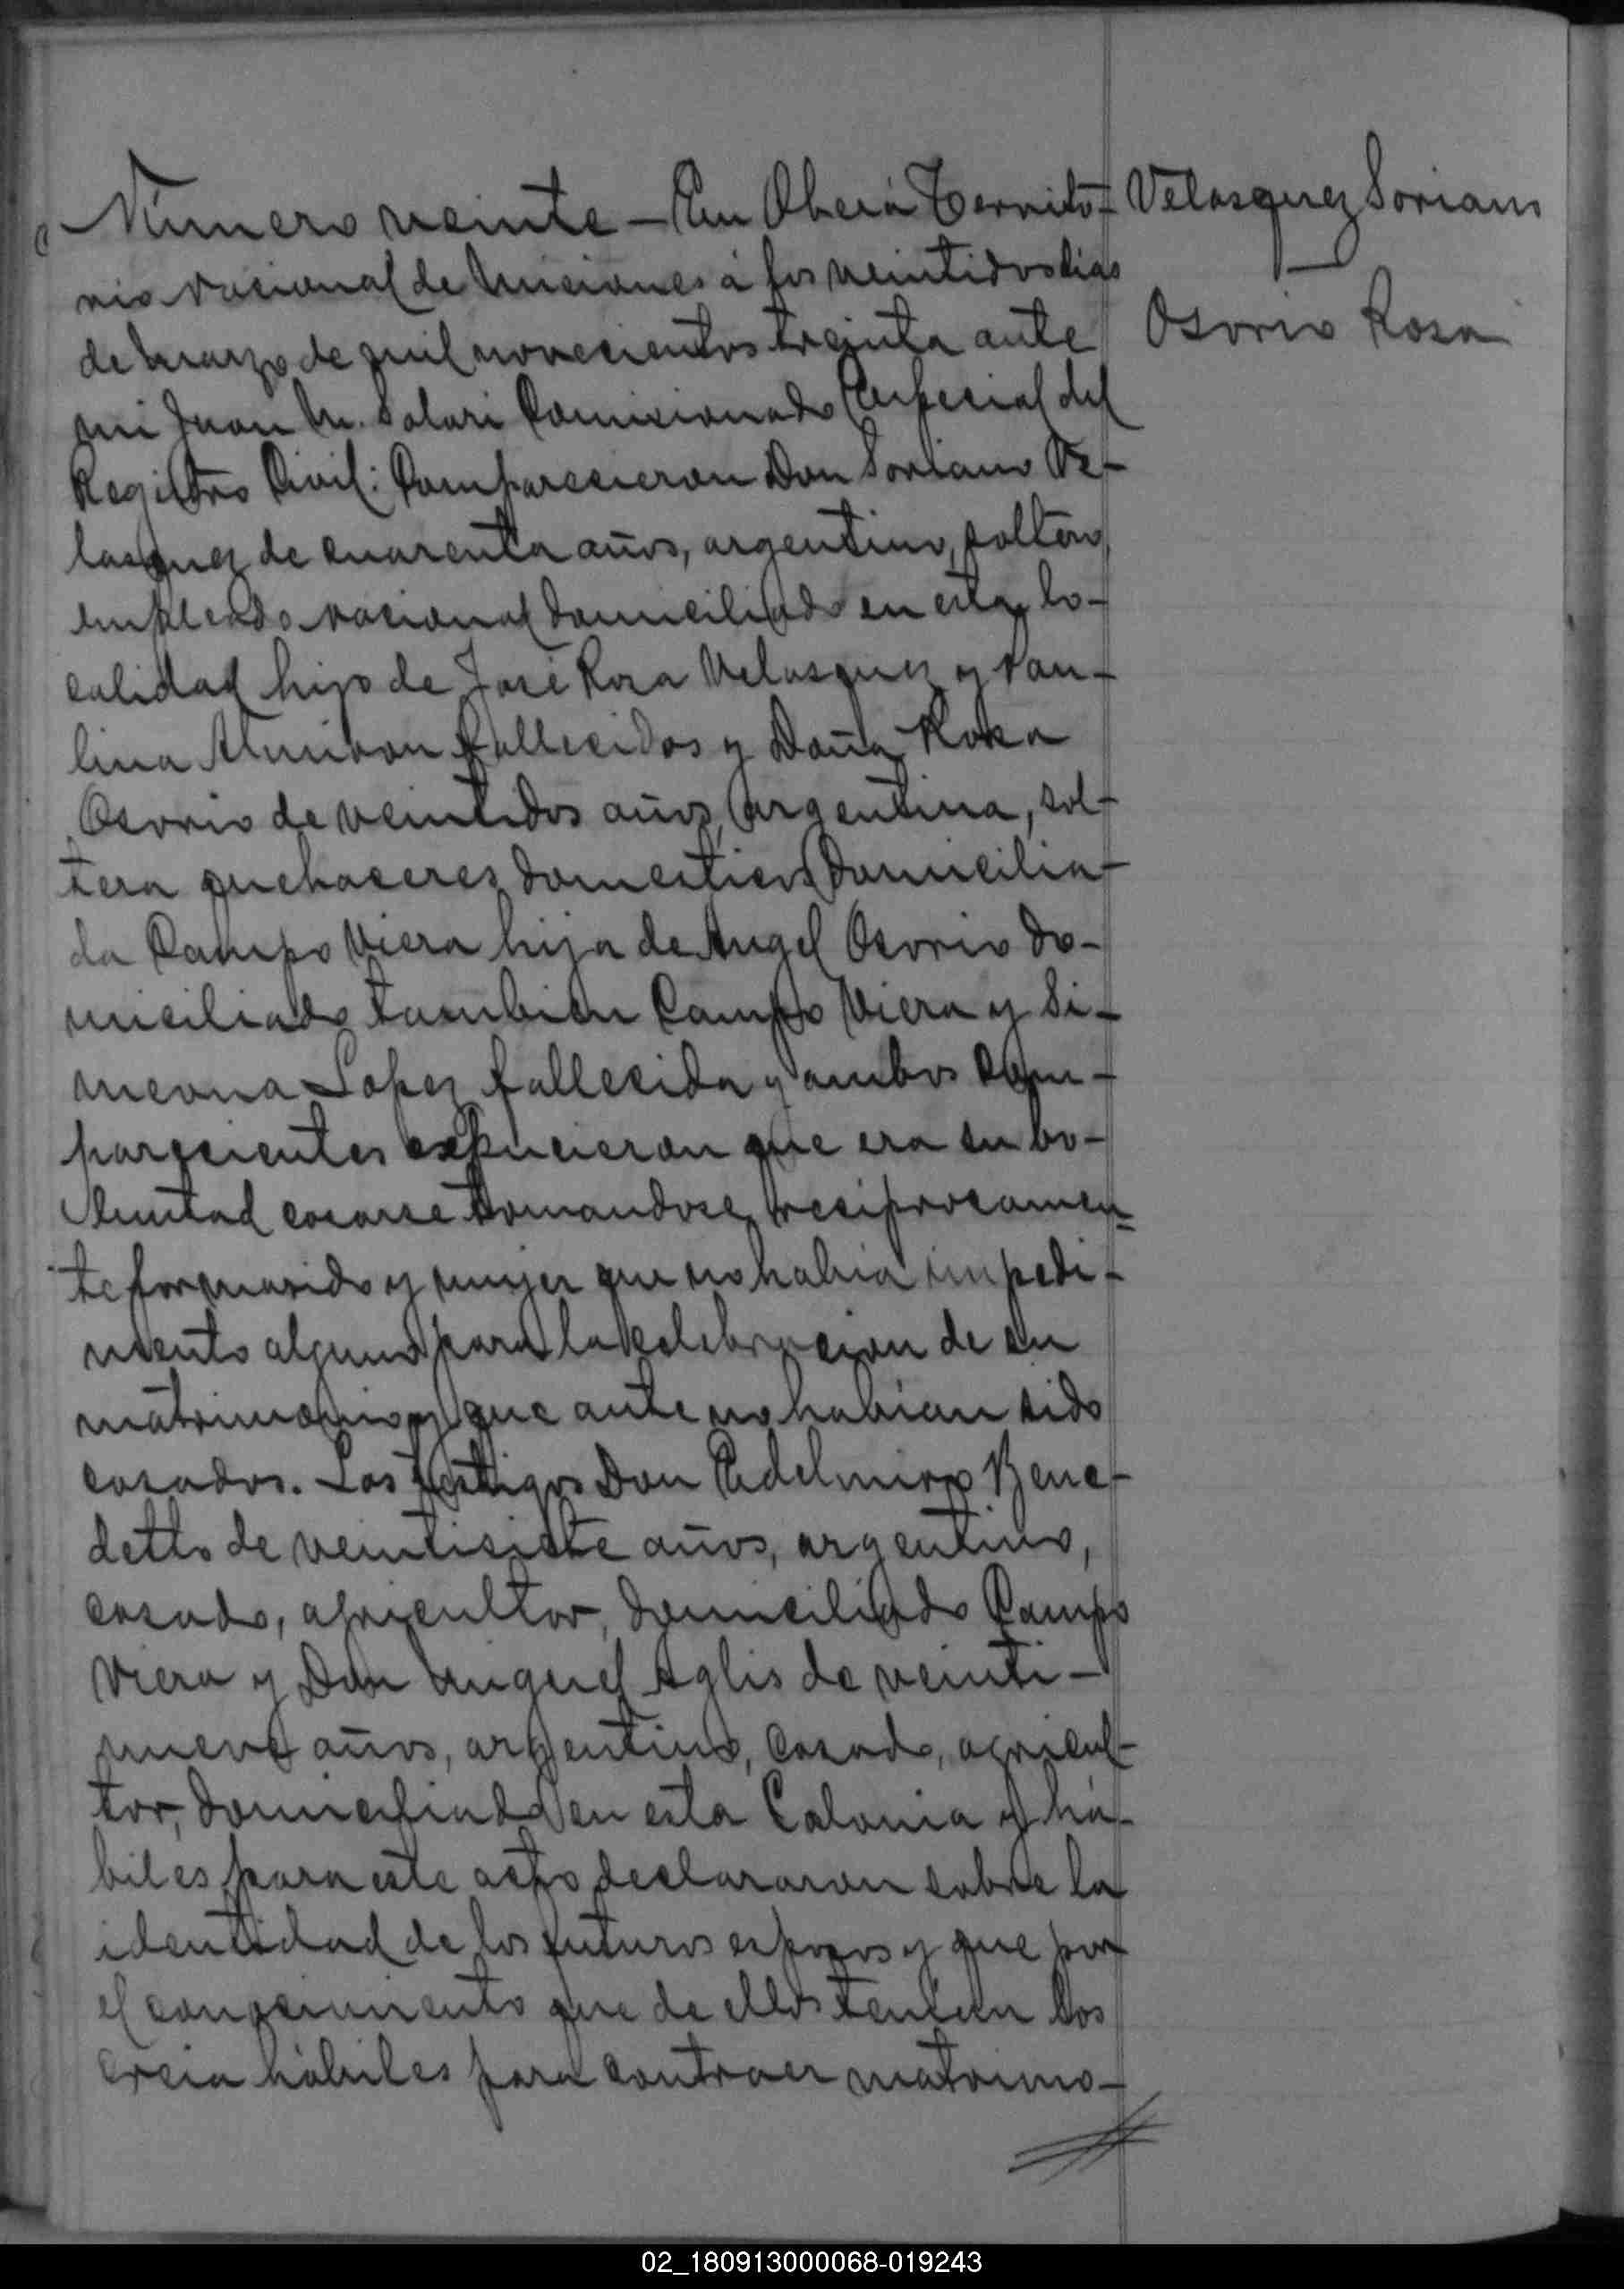 Número veinte — En Oberá Territo-
rio nacional de Misiones á los veintidos dias
de Marzo de mil novecientos treinta ante
mi Juan M. Solari Comisionado Especial del
Registro Civil: Comparecieron Don Soriano Ve-
lasquez de cuarenta años, argentino, soltero,
empleado nacional domiciliado en esta lo-
calidad hijo de José Rosa Velasquez y Pau-
lina Almiron fallecidos y Doña Rosa
Osorio de veintidos años, argentina, sol-
tera quehaceres domesticos domicilia-
da Campo Viera hija de Angel Osorio do-
miciliado tambien Campo Viera y Si-
meona Lopez fallecida y ambos com-
parecientes expucieron que era su vo-
luntad casarse tomandose reciprocamen=
te por marido y mujer que no habia impedi-
mento alguno para la celebracion de su
matrimonio y que ante no habian sido
casados. Los testigos Don Edelmiro Bene-
detto de veintisiete años, argentino,
casado, agricultor, domiciliado Campo
Viera y Don Miguel Aglis de veinti-
nueve años, argentino, casado, agricul-
tor, domiciliado en esta Colonia y há-
biles para este acto declararon sobre la
identidad de los futuros esposos y que por
el conocimiento que de ellos tenían los
creia hábiles para contraer matrimo-
Velasquez Soriano
Osorio Rosa
02_180913000068-019243